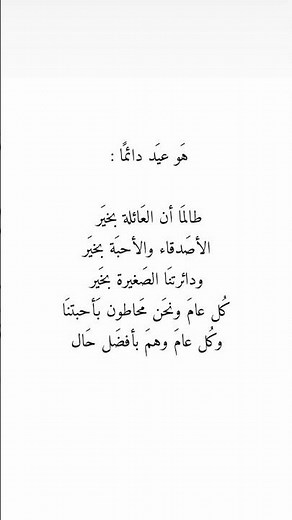 هَو عيَد دائمًا :
طالمَا أن العَائلة بخيَر
الأصَدقاء والأحبَة بخيَر
ودائرتنَا الصَغيرة بخَير
كُل عامَ ونحَن مَحاطون بَأحبتنَا
وكُل عامَ وهمَ بأفضَل حَال